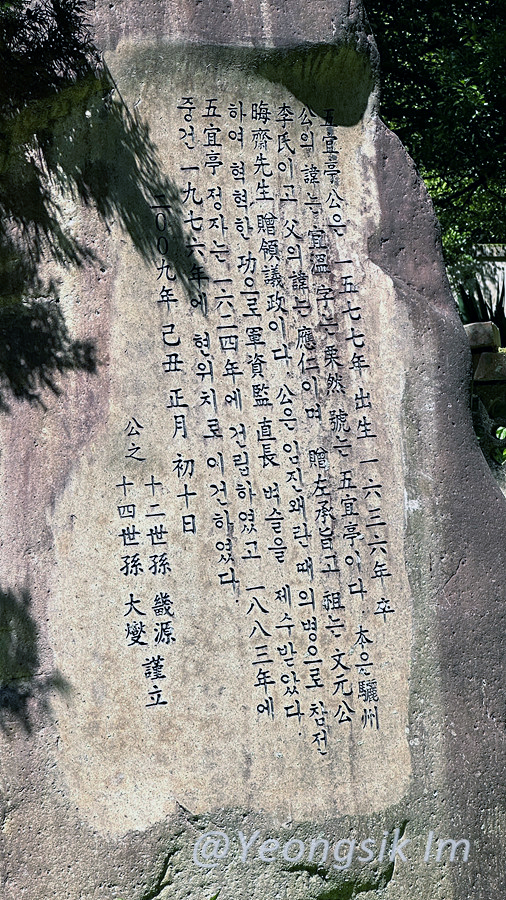 五宜亭公은 一五七七年 出生 一六三六年 卒
公의 諱는 宜溫 字는 栗然 號는 五宜亭이다. 本은 驪州
李氏이고 父의 諱는 應仁이며 贈左承旨고 祖는 文元公
晦齋先生 贈領議政이다. 公은 임진왜란때 의병으로 참전
하여 혁혁한 功으로 軍資監 直長 벼슬을 제수받았다.
五宜亭 정자는 一六二四年에 건립하였고 一八八三年에
중건 一九七六年에 현위치로 이건하였다.
二00九年 己丑 正月 初十日
公之 十二世孫 畿源 謹立
十四世孫 大燮
@Yeongsik Im